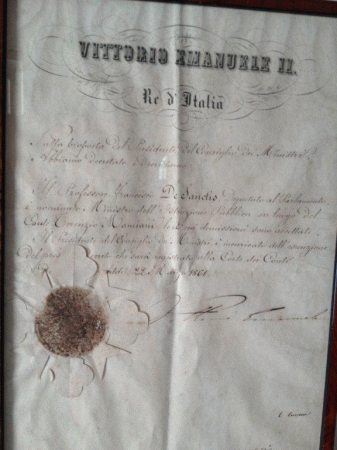 VITTORIO EMANUELE II.
Re d'Italia
Sulla proposta del Presidente del Consiglio dei Ministri
Abbiamo decretato e decretiamo
Il Professore Francesco De Sanctis, Deputato al Parlamento
è nominato Ministro dell'Istruzione Pubblica in luogo del
Conte Terenzio Mamiani le cui dimissioni sono accettate
Il Presidente del Consiglio dei Ministri è incaricato dell'esecuzione
del che sarà registrato alla Corte dei Conti
addì 22 Marzo 1861
Vittorio Emanuele
C. Cavour